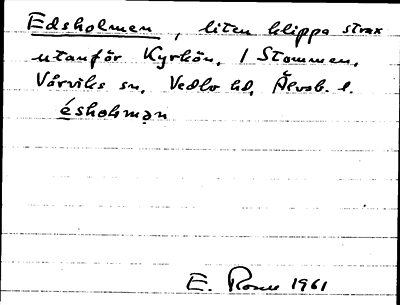 Edsholmen, liten klippa strax
utanför Kyrkön, i Stommen,
Vårviks sn, Vedbo hd, Älvsb. l.
ésholmən
E. 1961